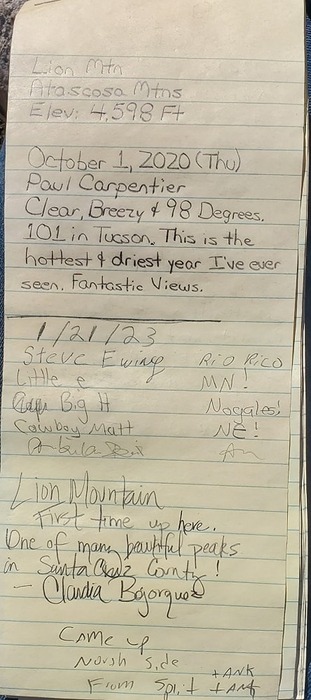 Lion Mtn
Atascosa Mtns
Elev: 4,598 Ft
October 1, 2020 (Thu)
Paul Carpentier
Clear, Breezy & 98 Degrees.
101 in Tucson. This is the
hottest & driest year I've ever
seen. Fantastic Views.
1/21/23
Steve Ewing Rio Rico
Little e MN!
Big H Nogales!
Cowboy Matt NE!
Lion Mountain
First time up here.
One of many beautiful peaks
in Santa Cruz County!
- Claudia Bojorquez
Came up
North Side
From Split